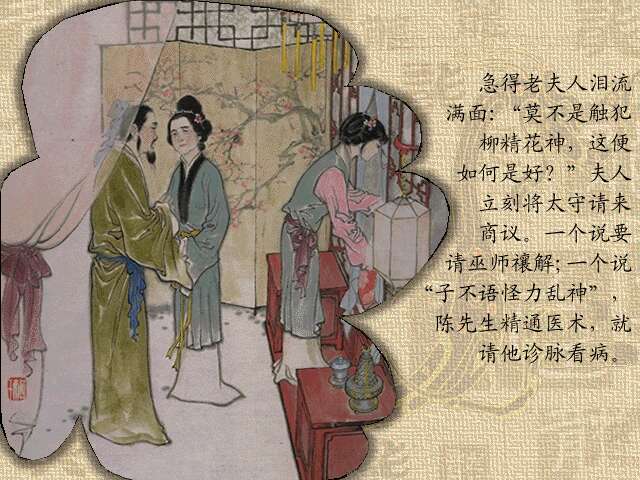 急得老夫人泪流
满面：“莫不是触犯
柳精花神，这便
如何是好？”夫人
立刻将太守请来
商议。一个说要
请巫师禳解;一个说
“子不语怪力乱神”，
陈先生精通医术，就
请他诊脉看病。